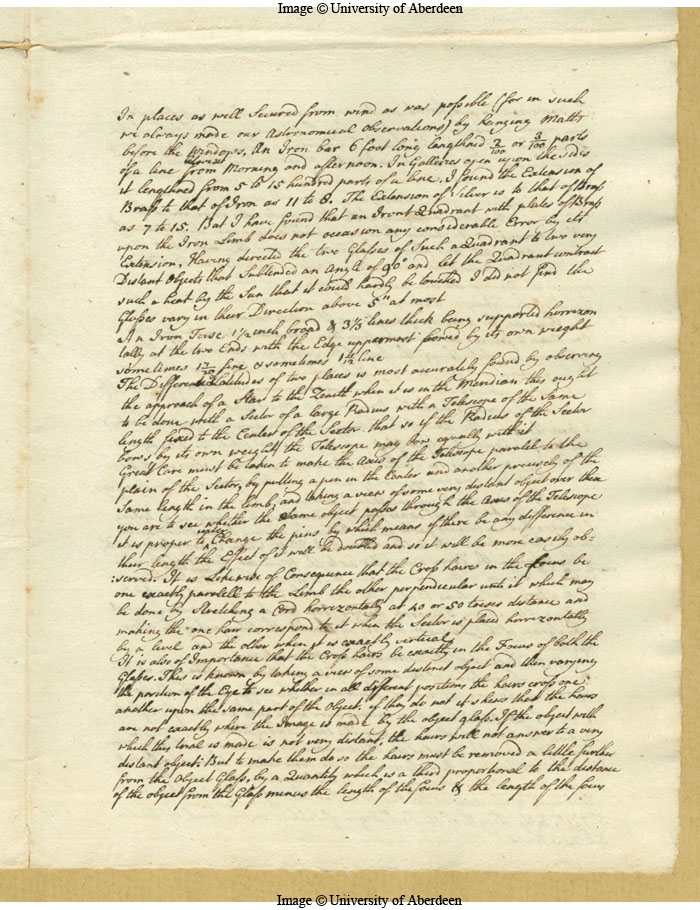 Image © University of Aberdeen
In places as well Secured from wind as was possible (for in such
we always made our Astronomical Observations) by hanging Matts
before the Windows, An Iron bar 6 foot long lengthned 2/100 or 3/100 parts
of a line betwixt from Morning and afternoon. In Galleries open upon the sides
it lengthned from 5 to 15 hundred parts of a line. I found the Extension of
Brass to that of Iron as 11 to 8. The Extension of Silver is to that of Brass
as 7 to 15. But I have found that an Iron Quadrant with plates of Brass
upon the Iron Limb does not occasion any considerable Error by its
Extension, Having directed the two Glasses of Such a Quadrant to two very
Distant Objects that Subtended an Angle of 90° and let the Quadrant contract
such a heat by the Sun that it could hardly be touched I did not find the
Glasses vary in their Direction above 5" at most
An Iron Toise 1 1/2 inch broad & 3 1/3 lines thick being supported horrizon
tally at the two Ends with the Edge uppermost bowed by its own weight
sometimes 1 line & sometimes 1 line
The Different Latitudes of two places is most accurately found by observing
the approach of a Star to the Zenith when it is in the Meridian this ought
to be done with a Sector of a large Radius with a Telescope of the Same
length fixed to the Center of the Sector that so if the Radius of the Sector
bows by its own weight the Telescope may bow equally with it
Great Care must be taken to make the Axis of the Telescope parallel to the
plain of the Sector, by putting a pin in the Center and another precisely of the
same length in the limb, and taking a view of some very distant object over them
you are to see whether the Same object passes through the Axis of the Telescope
it is proper to inter Change the pins by which means if there be any difference in
their length the Effect of it will be doubled and so it will be more easily ob=
:served. It is Likewise of Consequence that the Cross haires in the focus be
one exactly parrellell to the Limb the other perpendicular unto it which may
be done by Stretching a Cord horrizontally at 40 or 50 toises distance and
making the one hair correspond to it when the Sector is placed horrizontally
by a level and the other when it is exactly vertical
It is also of Importance that the Cross hairs be exactly in the Focus of both the
Glasses. This is known by taking a view of some distinct object and then varying
the position of the Eye to see whether in all different positions the hairs cross one
another upon the same part of the Object, if they do not it shews that the hairs
are not exactly where the Image is made by the object glass. If the object with
which this trial is made is not very distant, the hairs will not answer to a very
distant object: But to make them do so the hairs must be removed a little further
from the Object Glass, by a Quantity which is a third proportional to the distance
of the object from the Glass minus the length of the focus & the length of the focus
Image © University of Aberdeen